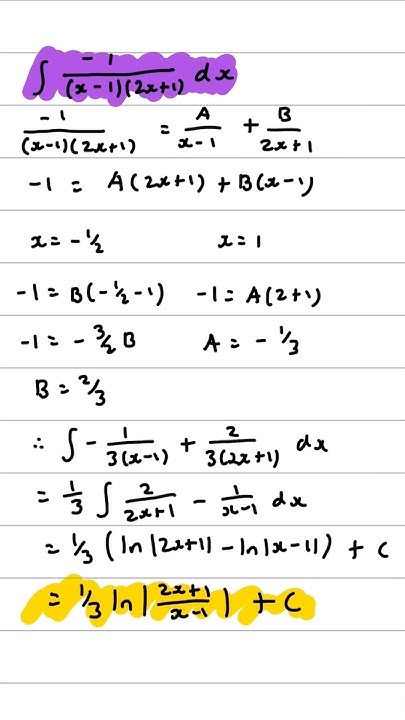 ∫ -1/((x-1)(2x+1)) dx
-1/((x-1)(2x+1)) = A/(x-1) + B/(2x+1)
-1 = A(2x+1) + B(x-1)
x = -1/2 x = 1
-1 = B(-1/2 - 1) -1 = A(2+1)
-1 = -3/2 B A = -1/3
B = 2/3
∴ ∫ - 1/(3(x-1)) + 2/(3(2x+1)) dx
= 1/3 ∫ 2/(2x+1) - 1/(x-1) dx
= 1/3 (ln|2x+1| - ln|x-1|) + C
= 1/3 ln|(2x+1)/(x-1)| + C